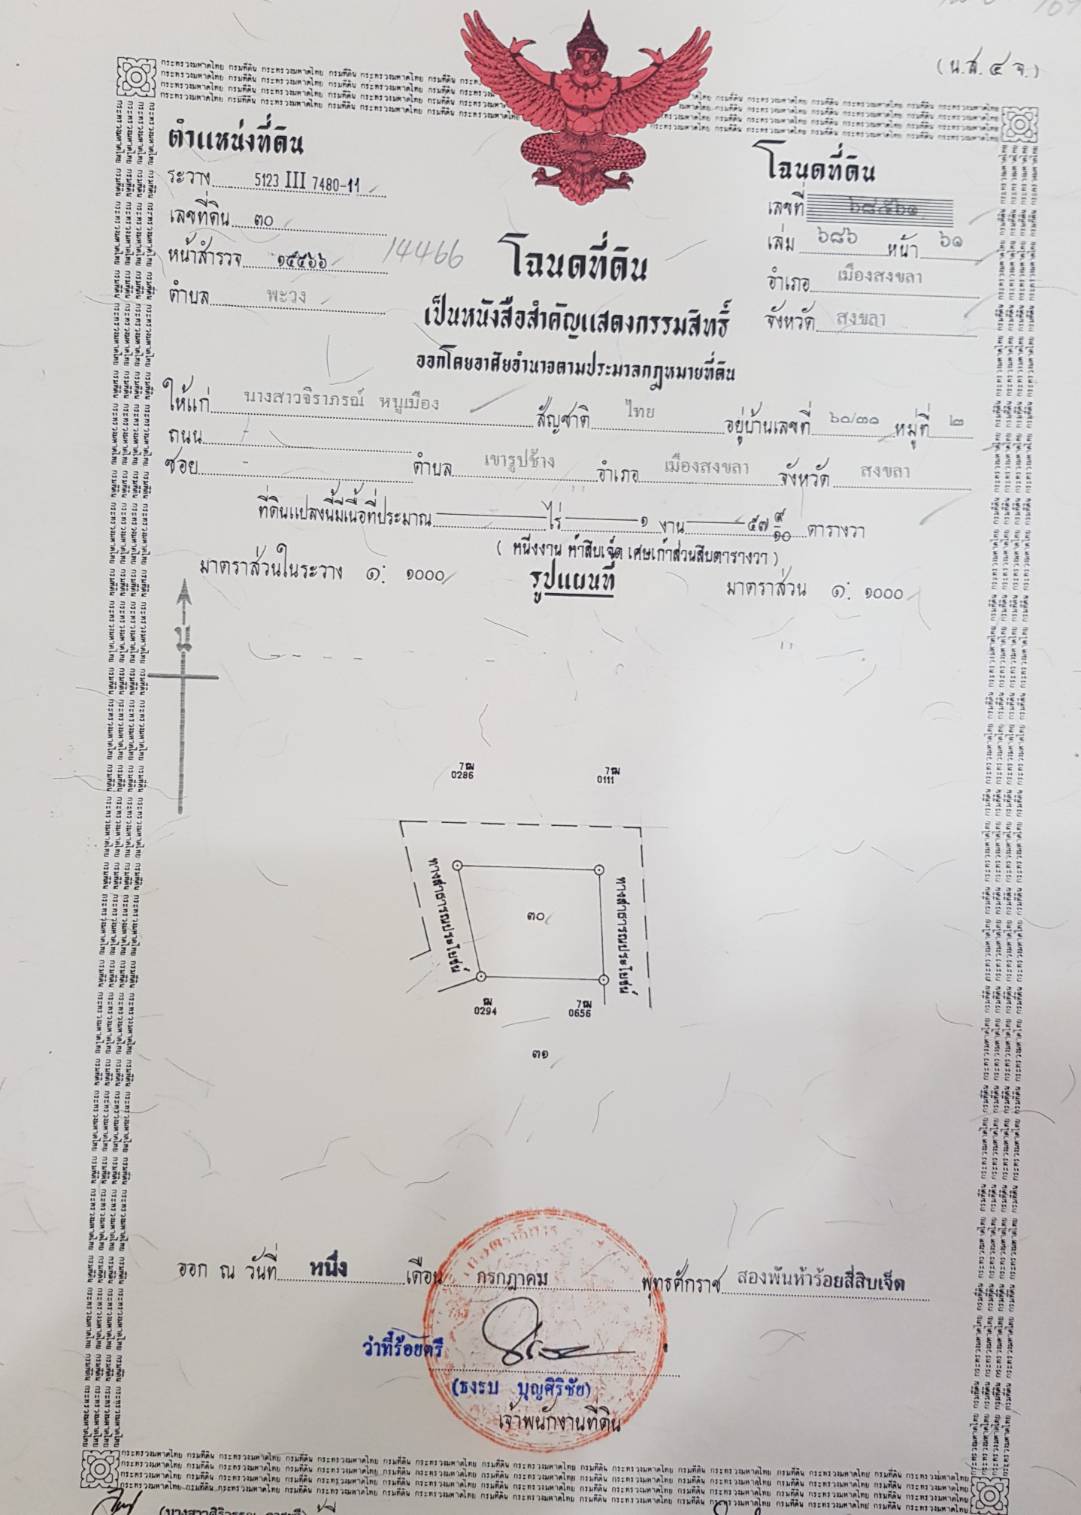 (น.ส.๔ จ.)
ตำแหน่งที่ดิน
ระวาง 5123 III 7480-11
เลขที่ดิน ๓๐
หน้าสำรวจ ๑๔๔๖๖ 14466
ตำบล พะวง
โฉนดที่ดิน
เลขที่
เล่ม ๖๘๖ หน้า ๖๑
อำเภอ เมืองสงขลา
จังหวัด สงขลา
โฉนดที่ดิน
เป็นหนังสือสำคัญแสดงกรรมสิทธิ์
ออกโดยอาศัยอำนาจตามประมวลกฎหมายที่ดิน
ให้แก่ นางสาวจิราภรณ์ หนูเมือง สัญชาติ ไทย อยู่บ้านเลขที่ ๖๐/๓๑ หมู่ที่ ๒
ถนน -
ซอย - ตำบล เขารูปช้าง อำเภอ เมืองสงขลา จังหวัด สงขลา
ที่ดินแปลงนี้มีเนื้อที่ประมาณ - ไร่ ๑ งาน ๕๗ ๙/๑๐ ตารางวา
( หนึ่งงาน ห้าสิบเจ็ด เศษเก้าส่วนสิบตารางวา )
มาตราส่วนในระวาง ๑: ๑๐๐๐ รูปแผนที่ มาตราส่วน ๑: ๑๐๐๐
น
7ฒ 0286
7ฒ 0111
ทางสาธารณประโยชน์
๓๐
ทางสาธารณประโยชน์
ฒ 0294
7ฒ 0656
๓๑
ออก ณ วันที่ หนึ่ง เดือน กรกฎาคม พุทธศักราช สองพันห้าร้อยสี่สิบเจ็ด
ว่าที่ร้อยตรี
(ธงรบ บุญศิริชัย)
เจ้าพนักงานที่ดิน
กระทรวงมหาดไทย กรมที่ดิน